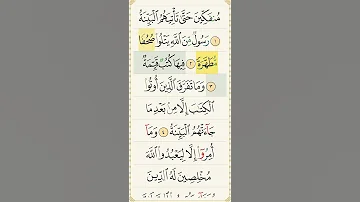 مُنفَكِّينَ حَتَّىٰ تَأْتِيَهُمُ ٱلْبَيِّنَةُ
١ رَسُولٌ مِّنَ ٱللَّهِ يَتْلُوا۟ صُحُفًا
مُّطَهَّرَةً ٢ فِيهَا كُتُبٌ قَيِّمَةٌ
٣ وَمَا تَفَرَّقَ ٱلَّذِينَ أُوتُوا۟
ٱلْكِتَٰبَ إِلَّا مِنۢ بَعْدِ مَا
جَآءَتْهُمُ ٱلْبَيِّنَةُ ٤ وَمَآ
أُمِرُوٓا۟ إِلَّا لِيَعْبُدُوا۟ ٱللَّهَ
مُخْلِصِينَ لَهُ ٱلدِّينَ